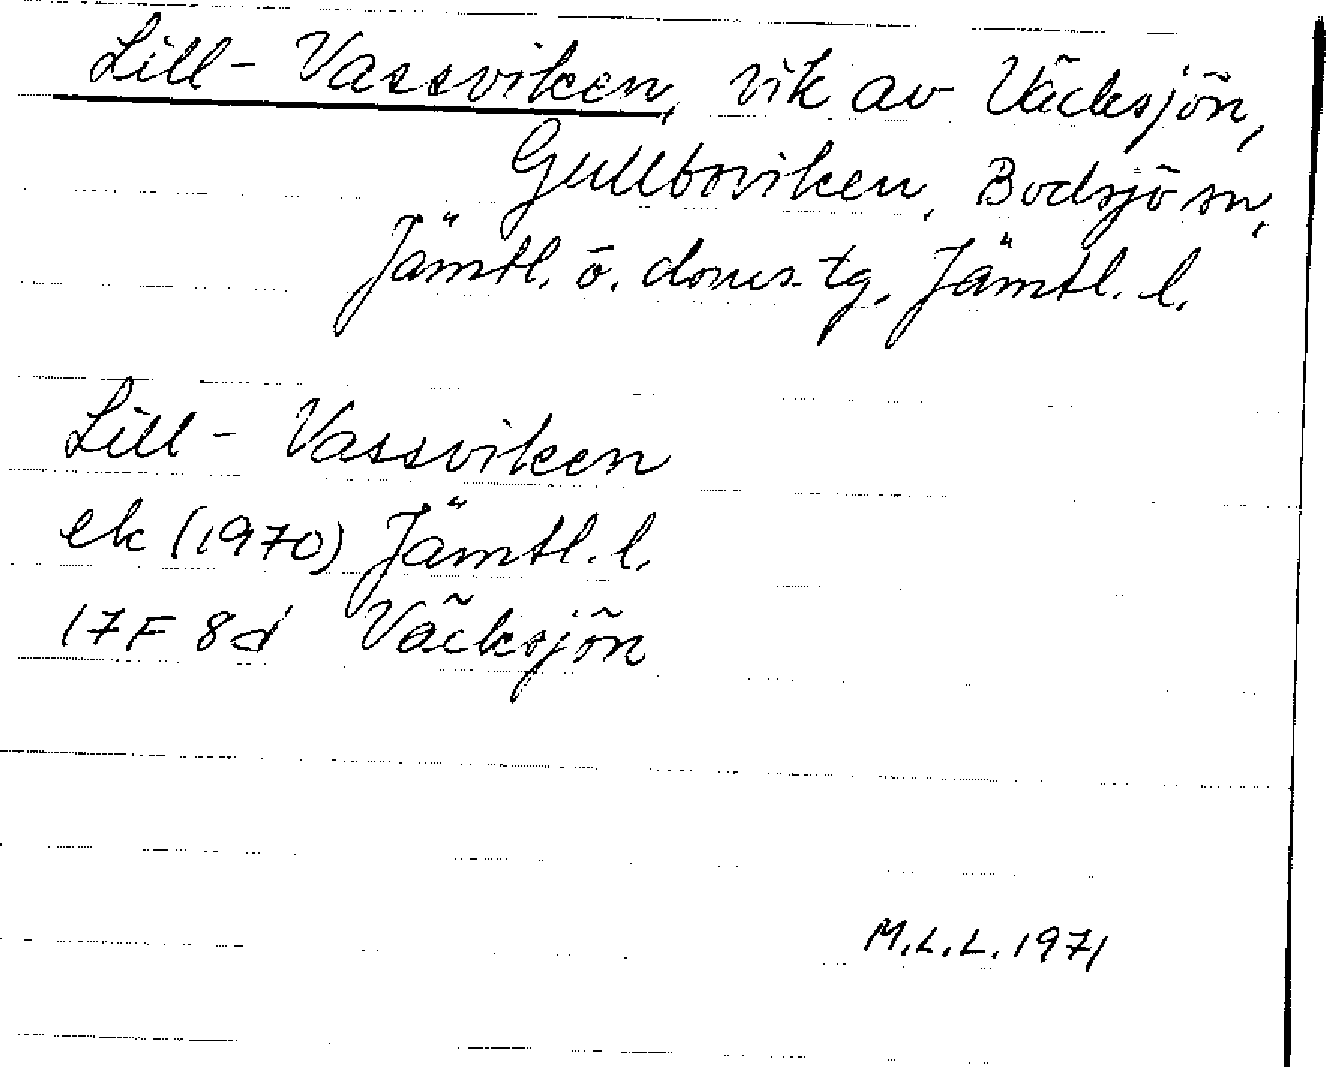 Lill-Vassviken, vik av Väcksjön,
Gullboviken, Bodsjö sn,
Jämtl. ö. doms. tg, Jämtl. l.
Lill-Vassviken
ek (1970) Jämtl. l.
17F 8d Väcksjön
M.L.L. 1971